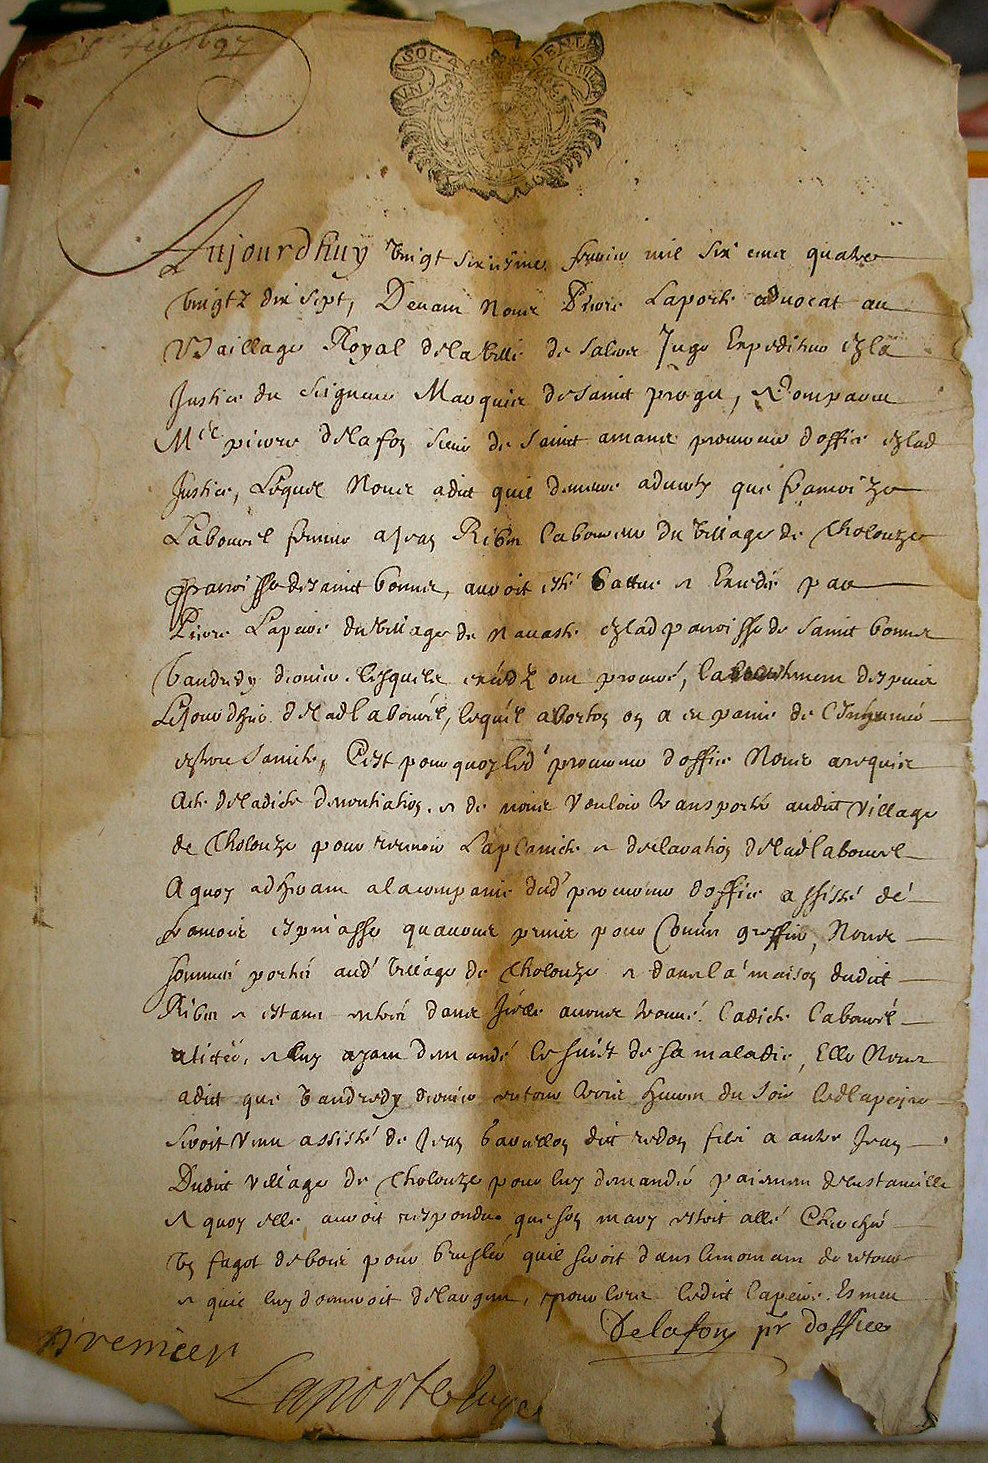 feb 1697
SOL
DEN
Aujourdhuy vingt sixiesme febvrier mil six cens quatre
vingtz dix sept, Devant Nous Pierre Laporte advocat au
Baillage Royal de la ville de Salers Juge Expeditius ezla
Justice du Seigneur Marquis de Saint proget, A Comparu
Me pierre delafon sieur de Sainct amans procureur d'office ezlad
Justice, Lequel Nous a dict quil demeure adverty que francoize
Labouril femme a Jean Ribes laboureur du village de Cholouze
parroisse de sainct bonnet, auroit esté battue et Excedée par
Pierre Lapeire du village de Navaste ezlad parroisse de Sainct bonnet
vandredy dernier lesquels excedz ont procuré, despuis
Lejourdhuy de lad labouril, lequel aborton on a eu peine de
estre Cest pourquoy led' procureur doffice Nous a requis
Acte de ladicte denontiation et de nous vouloir transporter audict village
de Cholouze pour recevoir La plaincte et declaration de lad labouril
A quoy adherant a la compaignie dud' procureur doffice assisté de
francois espinasse quavons prins pour Commis greffier, Nous
sommes portés aud' village de Cholouze et dans la maison dudict
Ribes et estant entrés dans Icelle avons trouvé ladicte labouril
alitée, et luy ayant demandé le suiet de sa maladie, Elle Nous
a dict que vandredy dernier entour trois heures du soir led lapeire
seroit venu assisté de Jean dict redon filz a autre Jean
Dudict village de Cholouze pour luy demander paiemen de
A quoy elle auroit respondu que son mary estoit allé Chercher
un fagot de bois pour brusler quil seroit dans le momant de retour
et quil luy donneroit de largent, pour lors ledict lapeire Esmeu
Delafon pr doffice
premier
Laporte Juge